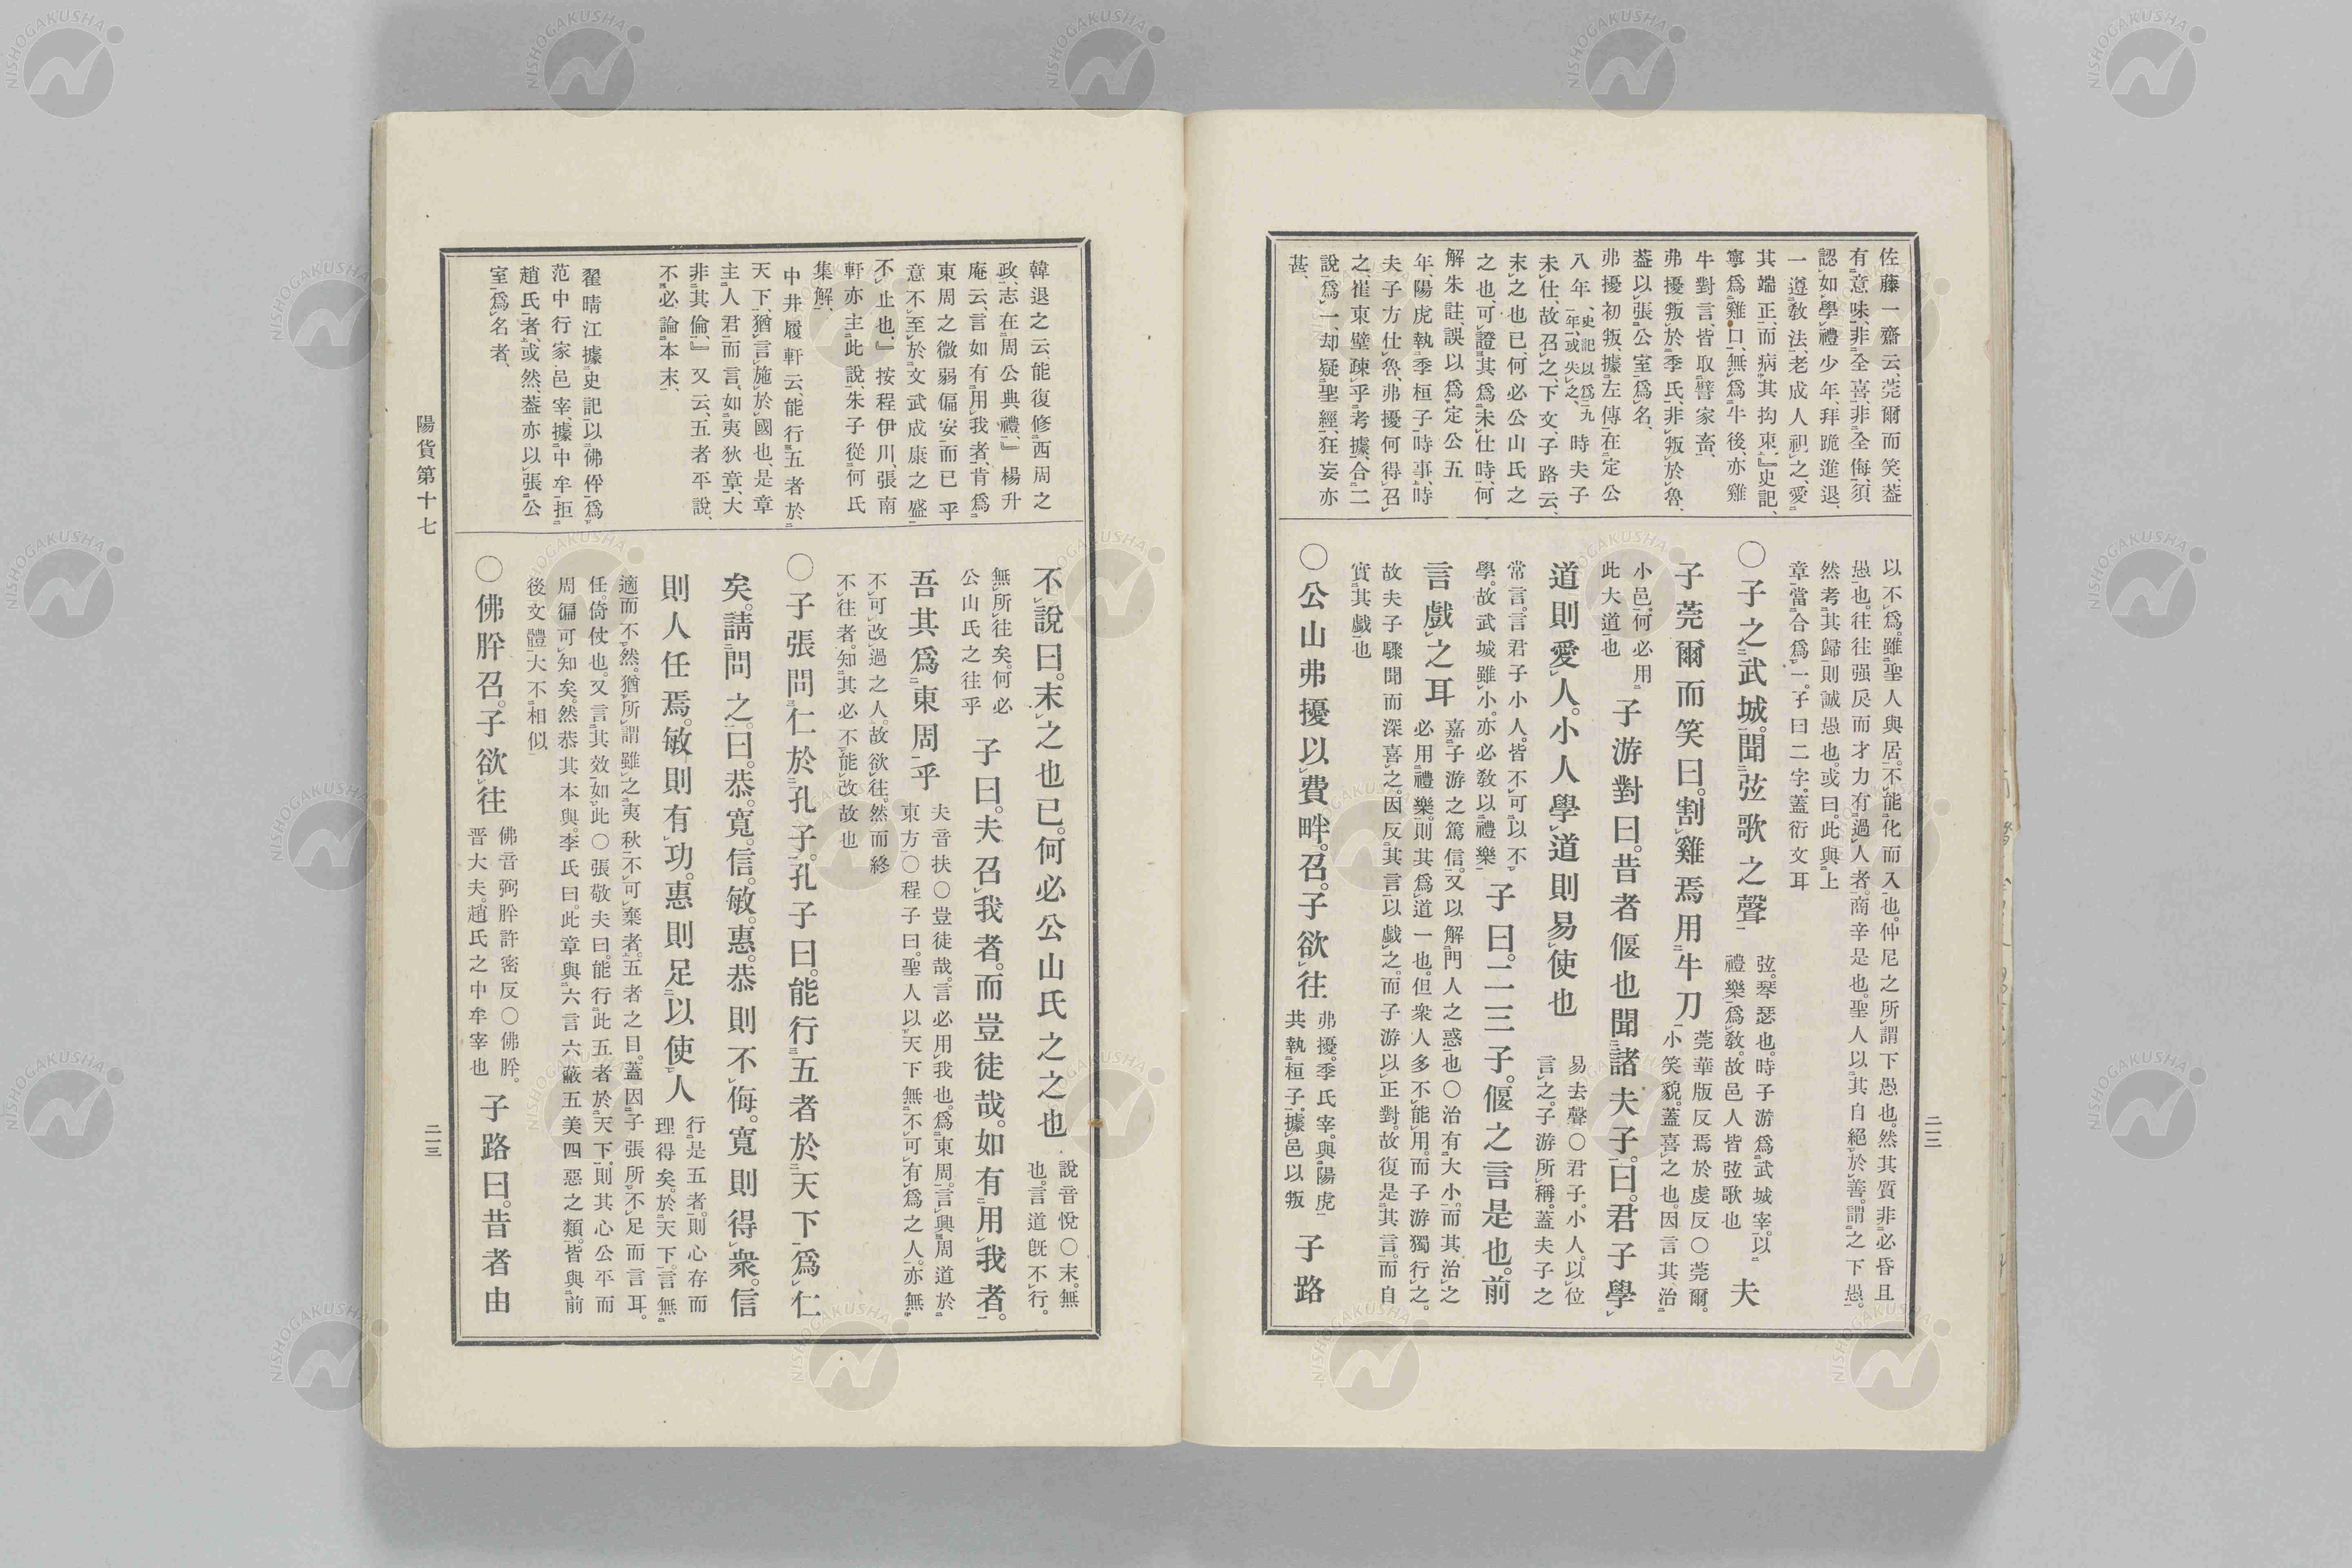 佐藤一齋云、莞爾而笑、葢
有意味、非全喜、非全侮、須
認、如學禮少年、拜跪進退、
一遵敎法、老成人視之、愛
其端正、而病其拘束、』史記、
寧爲雞口、無爲牛後、亦雞
牛對言、皆取譬家畜、
弗擾叛於季氏、非叛於魯、
葢以張公室爲名、
弗擾初叛、據左傳在定公
八年、史記以爲九年、或失之、時夫子
未仕、故召之、下文、子路云、
末之也已、何必公山氏之
之也、可證其爲未仕時、何
解朱註、誤以爲定公五
年、陽虎執季桓子時事、時
夫子方仕魯、弗擾何得召
之、崔東壁疎乎考據、合二
說爲一、却疑聖經、狂妄亦
甚、
以不爲。雖聖人與居。不能化而入也。仲尼之所謂下愚也。然其質非必昏且
愚也。往往强戾而才力有過人者。商辛是也。聖人以其自絕於善。謂之下愚。
然考其歸則誠愚也。或曰。此與上
章當合爲一。子曰二字。蓋衍文耳
〇子之武城。聞弦歌之聲 弦。琴瑟也。時子游爲武城宰。以禮樂爲敎。故邑人皆弦歌也 夫
子莞爾而笑曰。割雞焉用牛刀 莞華版反焉於虔反〇莞爾。小笑貌。蓋喜之也。因言其治
小邑。何必用此大道也 子游對曰。昔者偃也聞諸夫子。曰。君子學
道則愛人。小人學道則易使也 易去聲〇君子。小人。以位言之。子游所稱。蓋夫子之
常言。言君子小人。皆不可以不學。故武城雖小。亦必敎以禮樂 子曰。二三子。偃之言是也。前
言戲之耳 嘉子游之篤信。又以解門人之惑也〇治有大小。而其治之必用禮樂。則其爲道一也。但衆人多不能用。而子游獨行之。
故夫子驟聞而深喜之。因反其言以戲之。而子游以正對。故復是其言。而自
實其戲也
〇公山弗擾以費畔。召。子欲往 弗擾。季氏宰。與陽虎共執桓子。據邑以叛 子路
二一二
韓退之云、能復修西周之
政、志在周公典禮、』楊升
庵云、言如有用我者、肯爲
東周之微弱偏安而已乎
意不至於文武成康之盛
不止也、』按程伊川、張南
軒亦主此說、朱子從何氏
集解、
中井履軒云、能行五者於
天下、猶言施於國也、是章
主人君而言、如夷狄章、大
非其倫、』又云、五者平說、
不必論本末、
翟晴江據史記、以佛肸爲
范中行家邑宰、據中牟拒
趙氏者、或然、葢亦以張公
室爲名者、
不說曰。末之也已。何必公山氏之之也 說音悅〇末。無也。言道既不行。
無所往矣。何必公山氏之往乎 子曰。夫召我者。而豈徒哉。如有用我者。
吾其爲東周乎 夫音扶〇豈徒哉。言必用我也。爲東周。言興周道於東方〇程子曰。聖人以天下無不可有爲之人。亦無
不可改過之人。故欲往。然而終
不往者。知其必不能改故也
〇子張問仁於孔子。孔子曰。能行五者於天下爲仁
矣。請問之。曰。恭。寬。信。敏。惠。恭則不侮。寬則得衆。信
則人任焉。敏則有功。惠則足以使人 行是五者。則心存而理得矣。於天下。言無
適而不然。猶所謂雖之夷狄不可棄者。五者之目。蓋因子張所不足而言耳。
任。倚仗也。又言其效如此〇張敬夫曰。能行此五者於天下。則其心公平而
周徧可知矣。然恭其本與。李氏曰。此章與六言六蔽五美四惡之類。皆與前
後文體大不相似
〇佛肸召。子欲往 佛音弼肸許密反〇佛肸。晋大夫。趙氏之中牟宰也 子路曰。昔者由
陽貨第十七
二一三
NISHOGAKUSHA